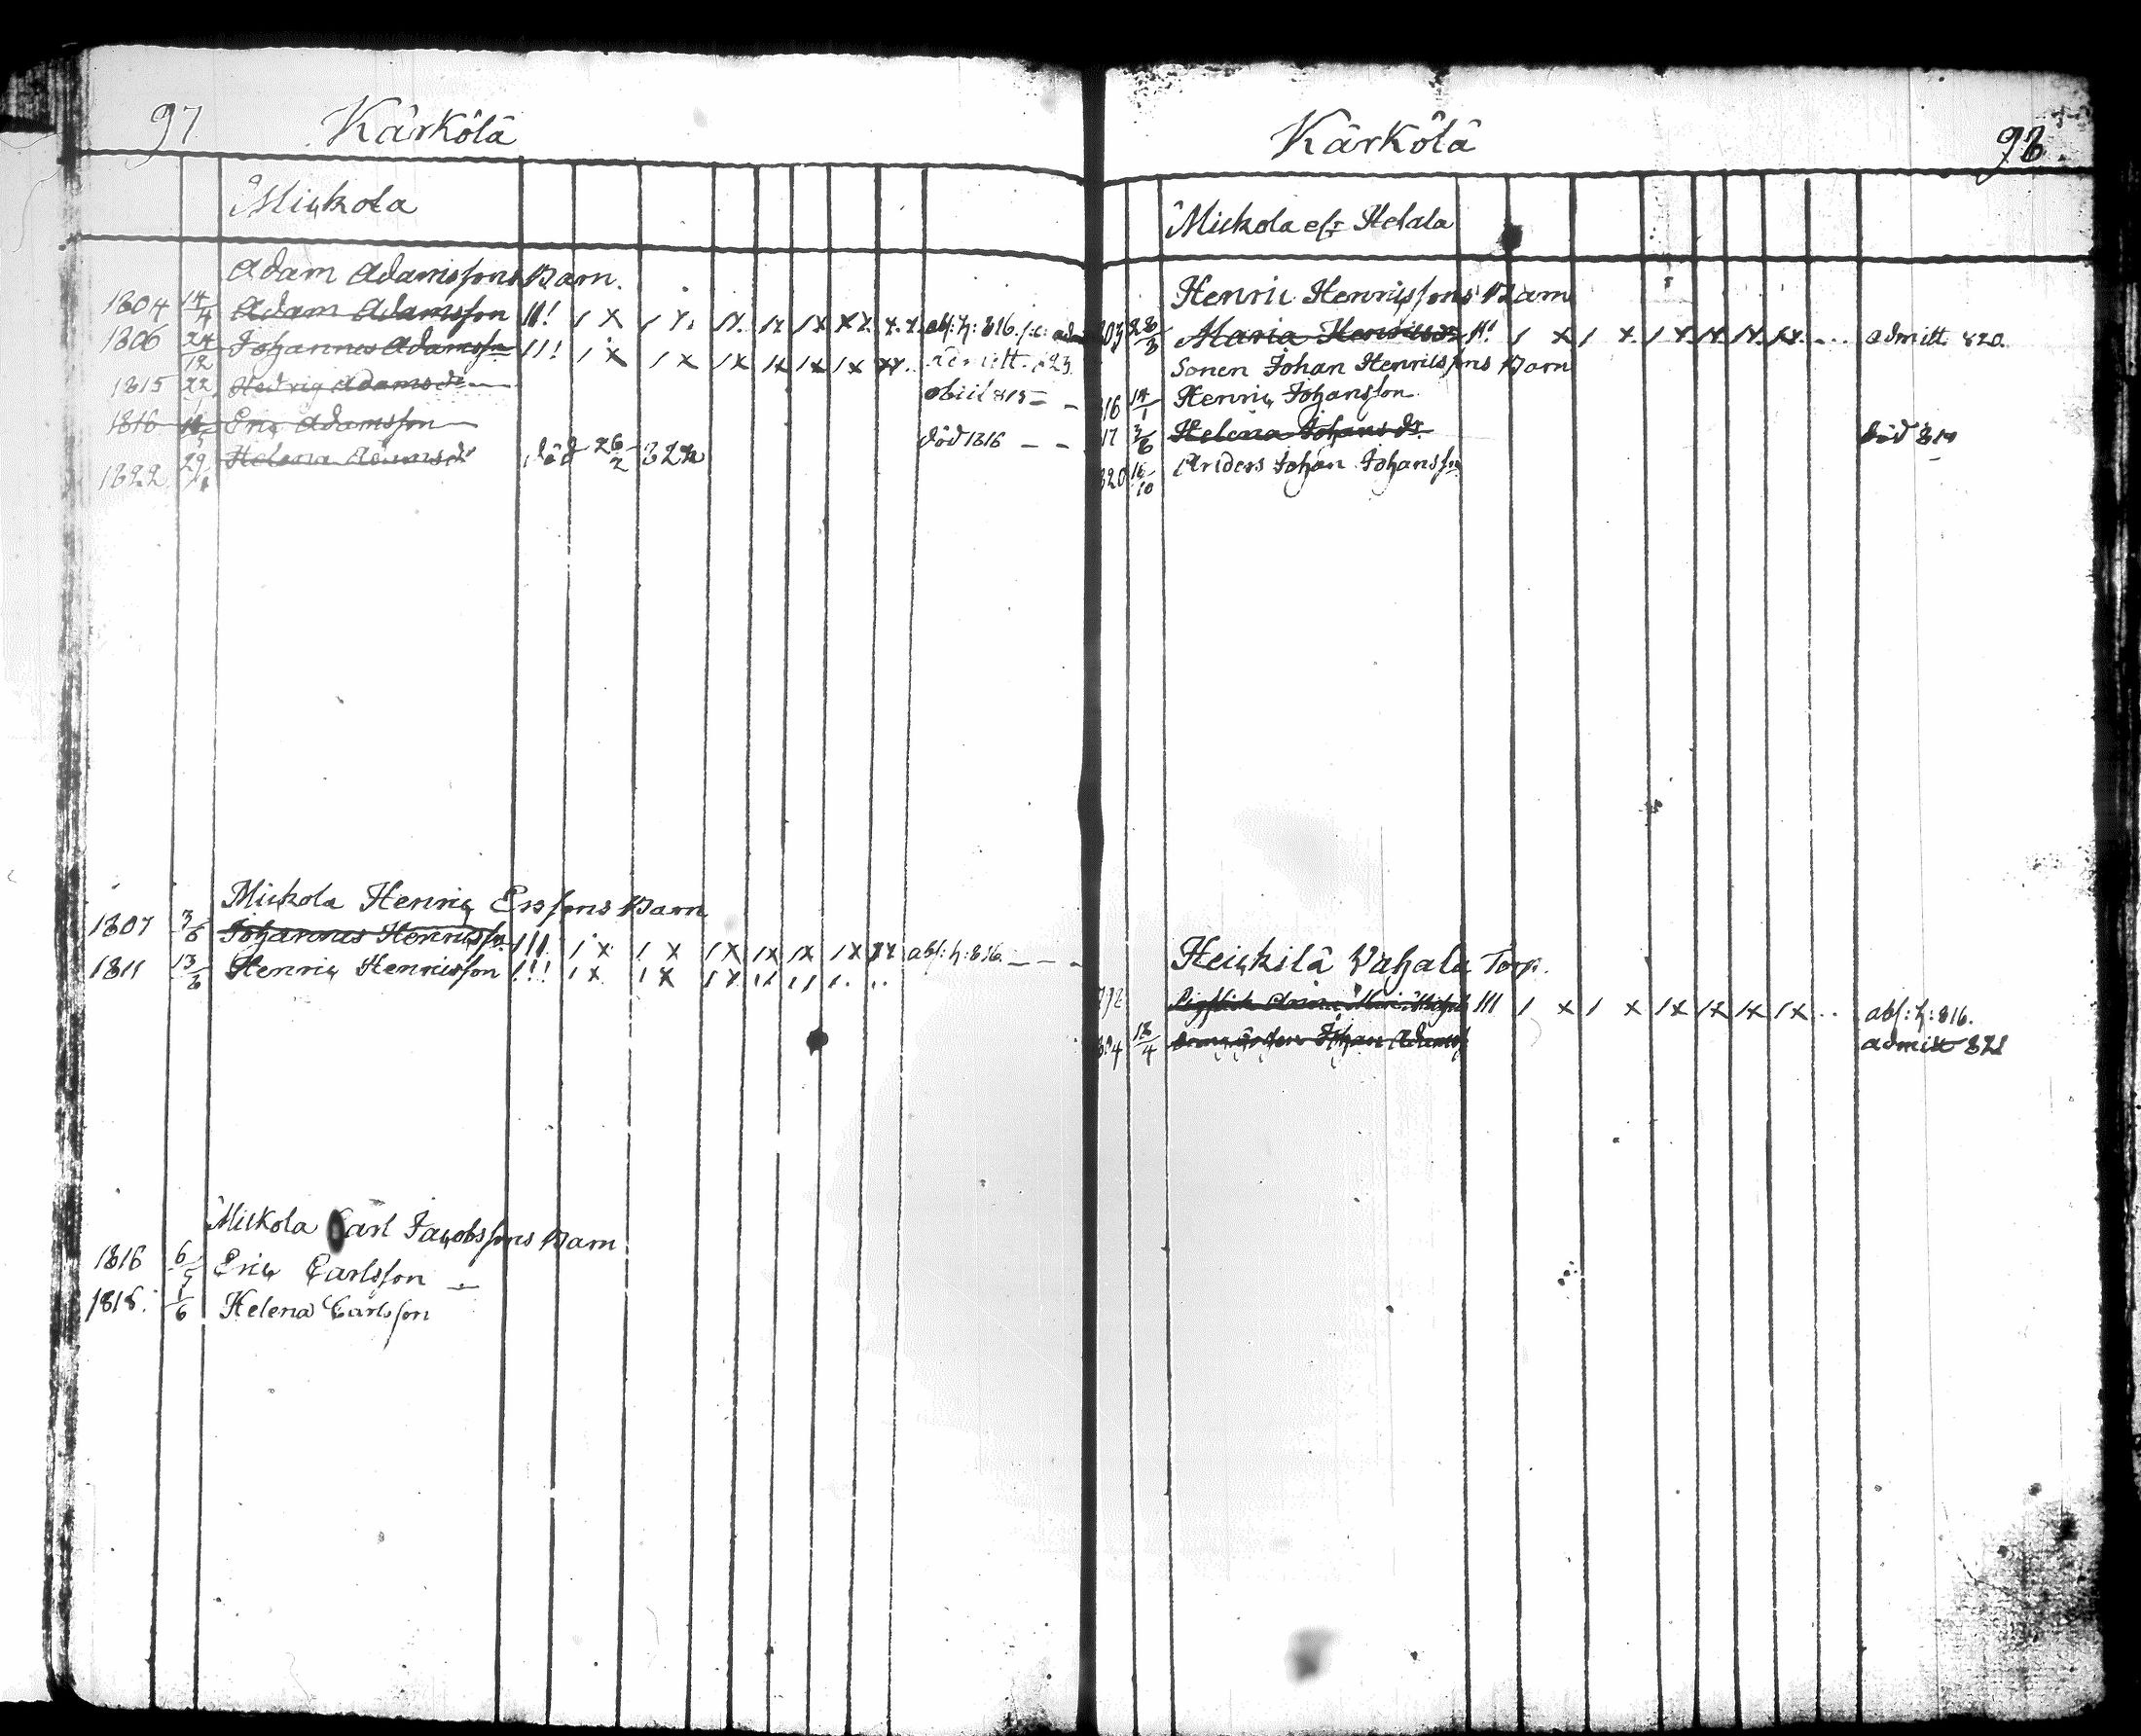 97 Kärkölä
Mickola
Adam Adamssons Barn.
1804 14/4 Adam Adamsson 11! 1 X abs: h: 816.
1806 24/12 Johannes Adamsson 111! 1 X 1 X 1X 1X 1X 1X admitt. 823.
1815 22 Hedvig Adamsdr obiit 815 -
1816 Eric Adamsson död 1816 - -
1822 29 Helena Adamsdr död 26/2 822
Mickola Henric Erssons Barn
1807 3/6 Johannes Henricsson 111 1 X 1 X 1X 1X 1X 1X XX abs: h: 816 - - -
1811 13/6 Henric Henricsson 1!! 1 X 1 X 1X
Mickola Carl Jacobssons Barn
1816 6/5 Eric Carlsson -
1818. 1/6 Helena Carlsson
Kärkölä 98.
Mickola elr Helala
Henric Henricssons Barn
803 28/3 Maria Henricsdr 11! 1 X 1 X 1X 1X 1X 1X ... admitt 820.
Sonen Johan Henricssons Barn
816 14/1 Henric Johansson
17 3/6 Helena Johansdr. död 819
820 16/10 Anders Johan Johansson
Heickilä Vahala Torp.
792 Anna 111 1 X 1 X 1X 1X 1X 1X .. abs: h: 816.
804 18/4 Johan Adamss admitt 821